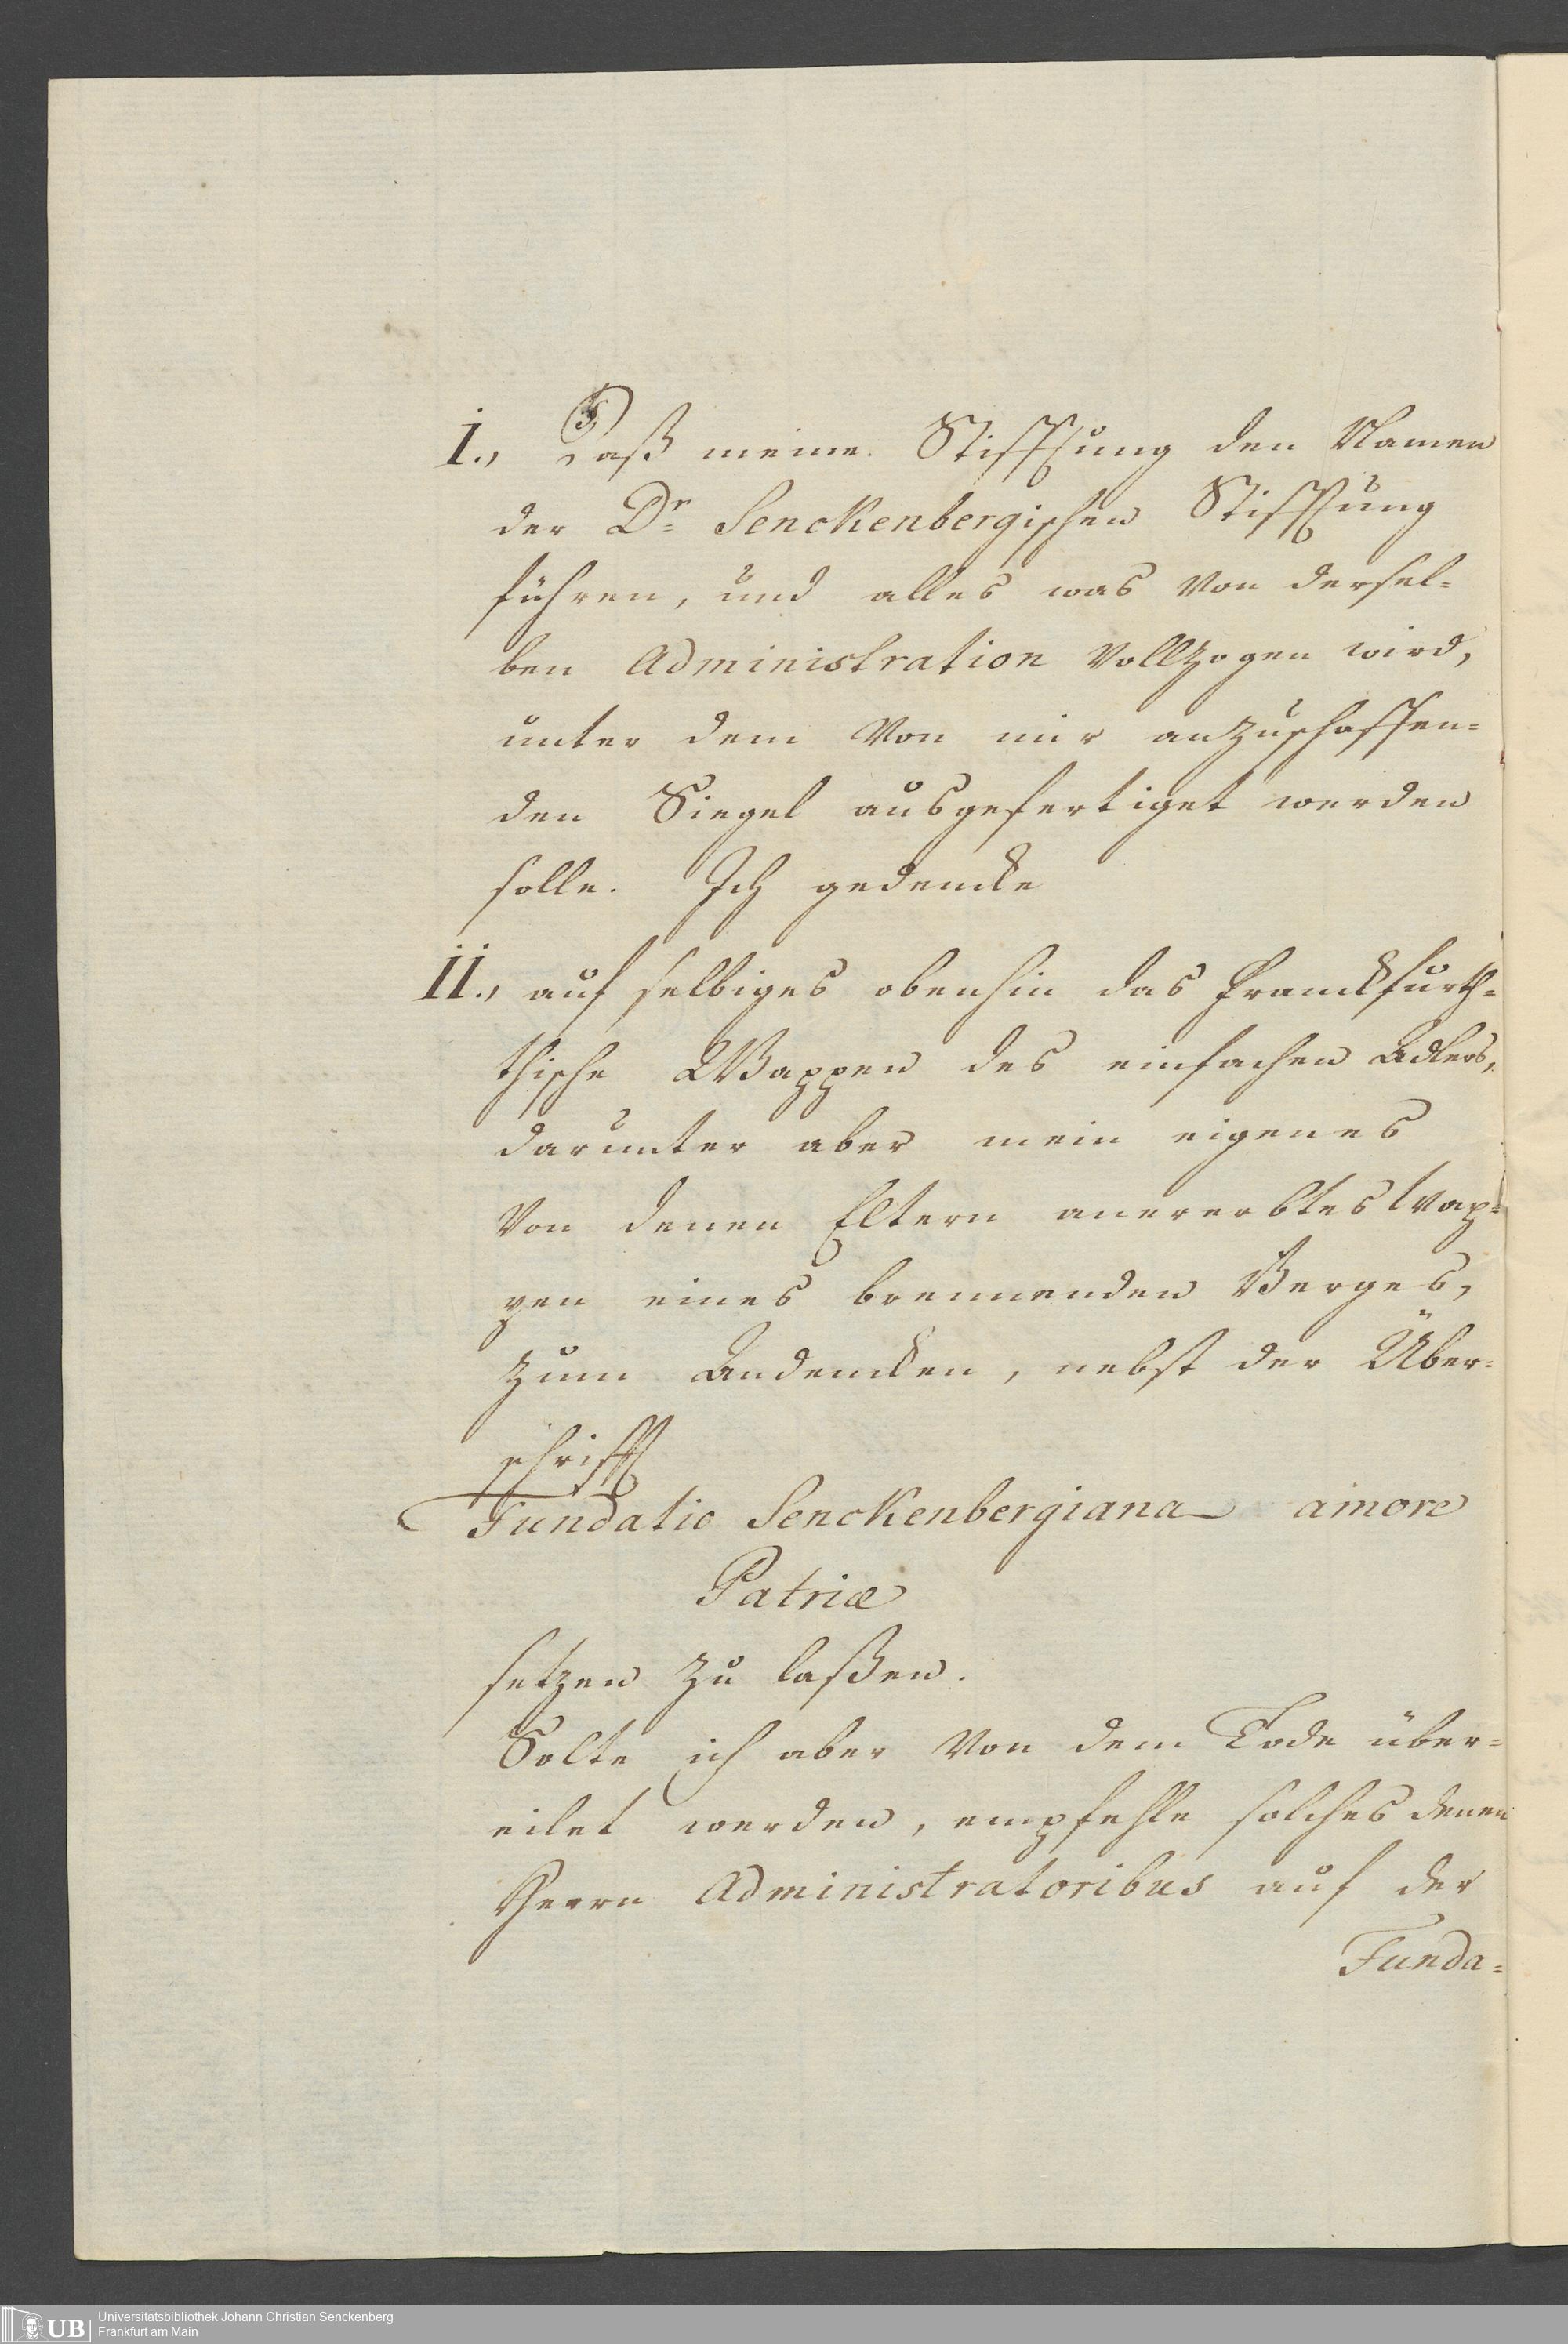 I., Daß meine Stifftung den Namen
der Dr. Senckenbergischen Stifftung
führen, und alles was von dersel-
ben Administration vollzogen wird,
unter dem von mir anzuschaffen-
den Siegel ausgefertiget werden
solle. Ich gedencke
II., auf selbiges obenhin das Franckfurth-
thische Wappen des einfachen Adlers,
darunter aber mein eigenes
von denen Eltern anererbtes Wap-
pen eines brennenden Berges,
zum Andencken, nebst der Über-
schrifft
Fundatio Senckenbergiana amore
Patriæ
setzen zu laßen.
Solte ich aber von dem Tode über-
eilet werden, empfehle solches denen
Herrn Administratoribus auf der
Funda-
UB Universitätsbibliothek Johann Christian Senckenberg
Frankfurt am Main